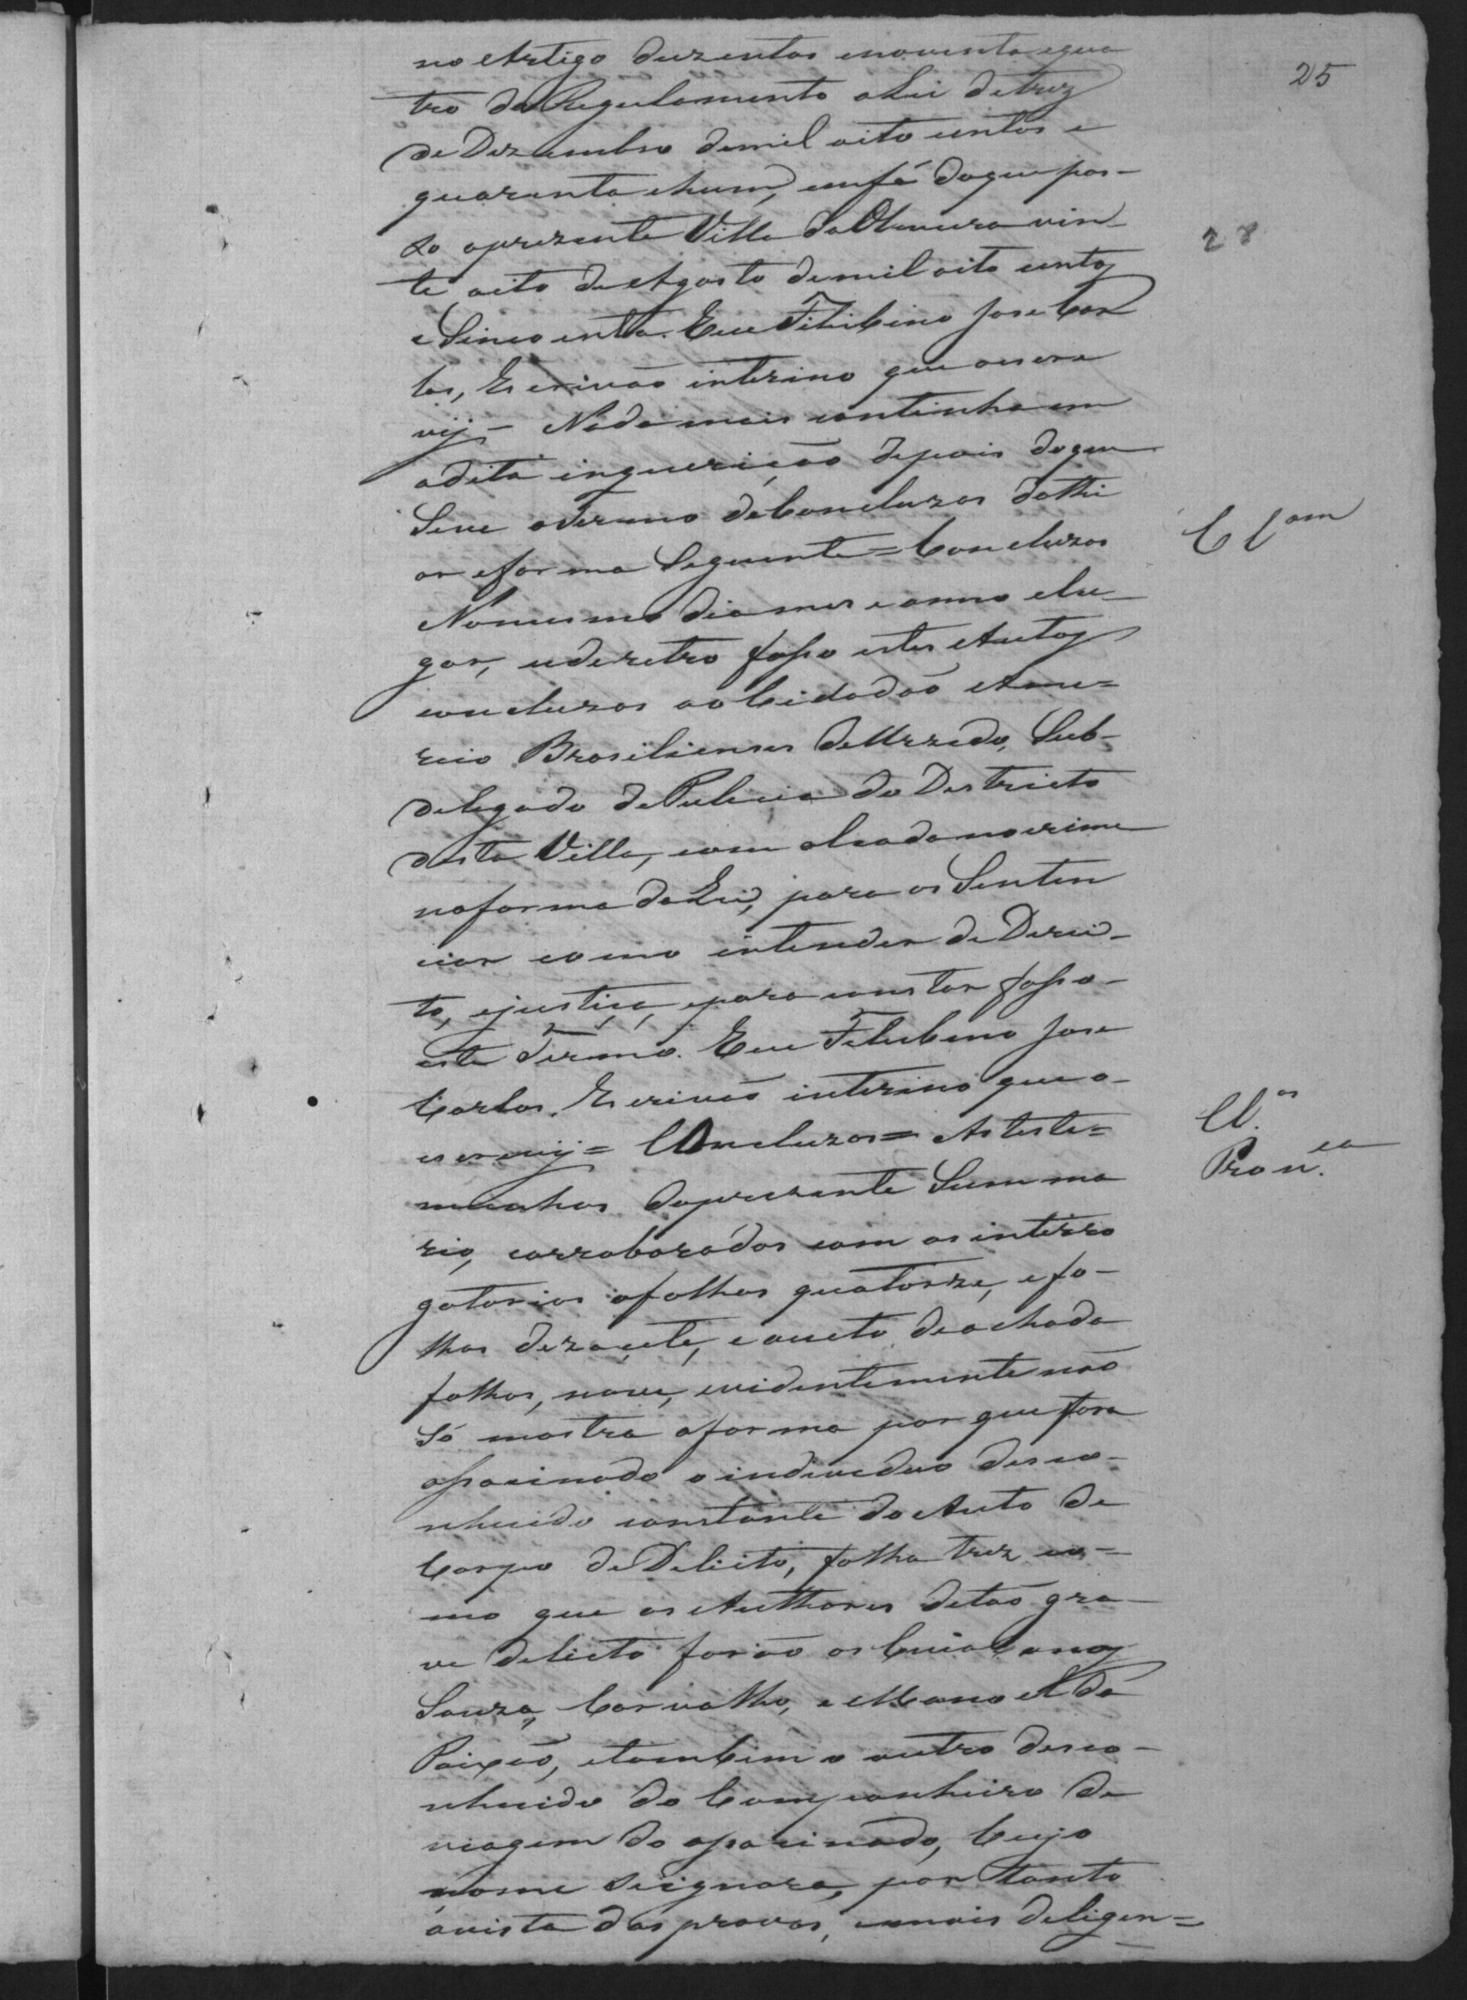 25
no Artigo duzentos enoventa equa
tro do Regulamento a Lei detrez
de Dezembro demil oito centos e
quarenta ehum, emfé doque pas-
so aprezente Villa da 
vin-
28
te oito de Agosto demil oito centos
e Sincoenta. Eu Felisbino Jose Car
los, Escrivão interino que oescre
vij - Nada mais continha em
adita inquerição depois doque
Seve otermo deConcluzos dathi
or eforma Seguente = Concluzos
Clsam
Nomesmo dia mes eanno elu-
gar, ederetro faço estes Autos
concluzos aoCidadão Ame=
rico Braziliense deAzevedo, Sub-
delegado dePulicia do Destricto
desta Villa, com alsada nocrime
naforma daLei, para os Senten
ciar como intender de Direi-
to, ejustiça, epara constar faço
este Termo. Eu Felisbino Jose
Carlos, Escrivão interino que o
escrevij = Concluzos = As teste=
Cl.os
Pron.ca
munhas doprezente Summa
rio, corroborados com os interro
gatorios afolhas quatorze, efo-
lhas dezaçete, eaucto deachada
folhas, nove, evidentemente não
Só mostra aforma por que fora
assacinado o individuo desco-
nhecido constante do Auto de
Corpo de Delicto, folha trez co=
mo que os Authores detão gra-
ve delicto forão os Cuiabanos
Souza, Carvalho, e Manoel da
Paixão, etambem o outro desco-
nhecido do Companheiro de
viagem do assacinado, Cujo
nome seignora, por tanto
avista das provas, emais deligen=